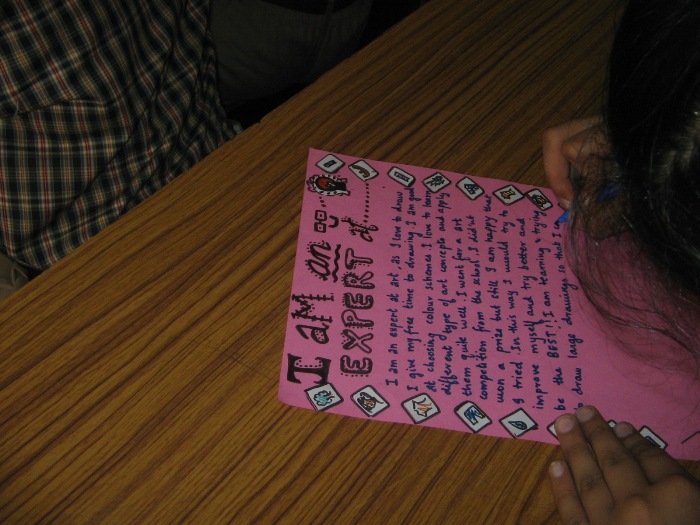 I am an
EXPERT at.........
I am an expert at art, as I love to draw
I give my free time to drawing. I am good
at choosing colour schemes. I love to learn
different type of art concepts and apply
them quite well. I went for a art
competition from the school. I did'nt
won a prize but still I am happy that
I tried. In this way I would try to
improve myself and try better and
be the BEST!! I am learning & trying
to draw large drawings so that I can